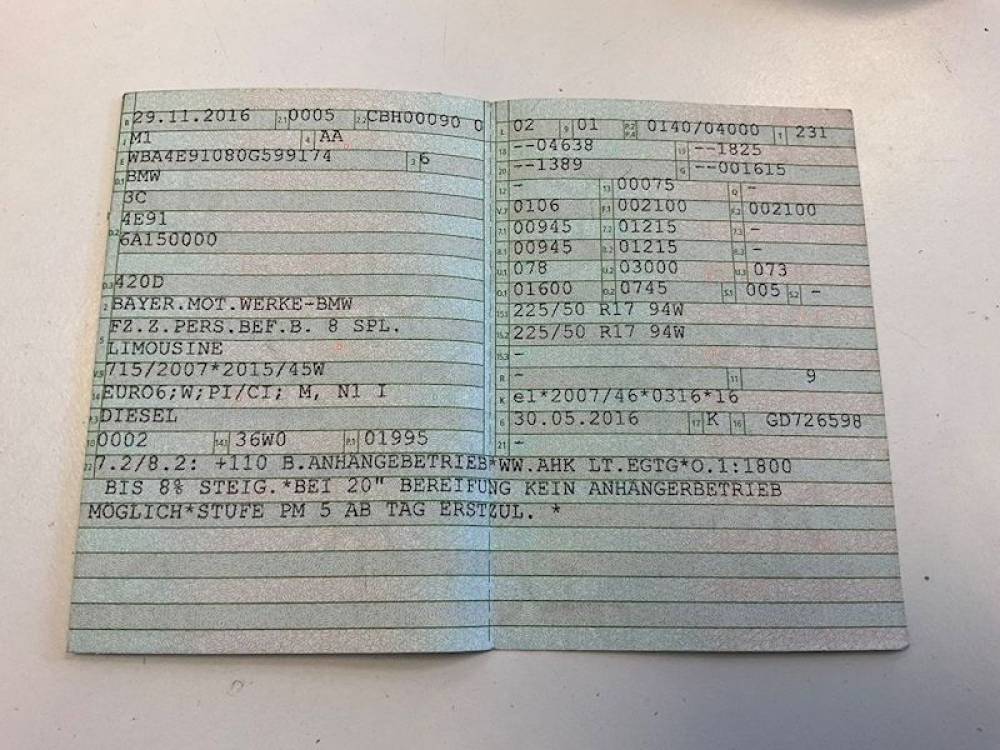 B 29.11.2016 2.1 0005 2.2 CBH00090 0
J M1 4 AA
E WBA4E91080G599174 3 6
D.1 BMW
3C
4E91
D.2 6A150000
D.3 420D
2 BAYER.MOT.WERKE-BMW
FZ.Z.PERS.BEF.B. 8 SPL.
5 LIMOUSINE
V.9 715/2007*2015/45W
14 EURO6;W;PI/CI; M, N1 I
P.3 DIESEL
10 0002 14.1 36W0 P.1 01995
L 02 9 01 P.2 P.4 0140/04000 T 231
18 --04638 19 --1825
20 --1389 G --001615
12 - 13 00075 Q -
V.7 0106 F.1 002100 F.2 002100
7.1 00945 7.2 01215 7.3 -
8.1 00945 8.2 01215 8.3 -
U.1 078 U.2 03000 U.3 073
O.1 01600 O.2 0745 S.1 005 S.2 -
15.1 225/50 R17 94W
15.2 225/50 R17 94W
15.3 -
R - 11 9
K e1*2007/46*0316*16
6 30.05.2016 17 K 16 GD726598
21 -
22 7.2/8.2: +110 B.ANHÄNGEBETRIEB*WW.AHK LT.EGTG*O.1:1800
BIS 8% STEIG.*BEI 20" BEREIFUNG KEIN ANHÄNGERBETRIEB
MÖGLICH*STUFE PM 5 AB TAG ERSTZUL. *